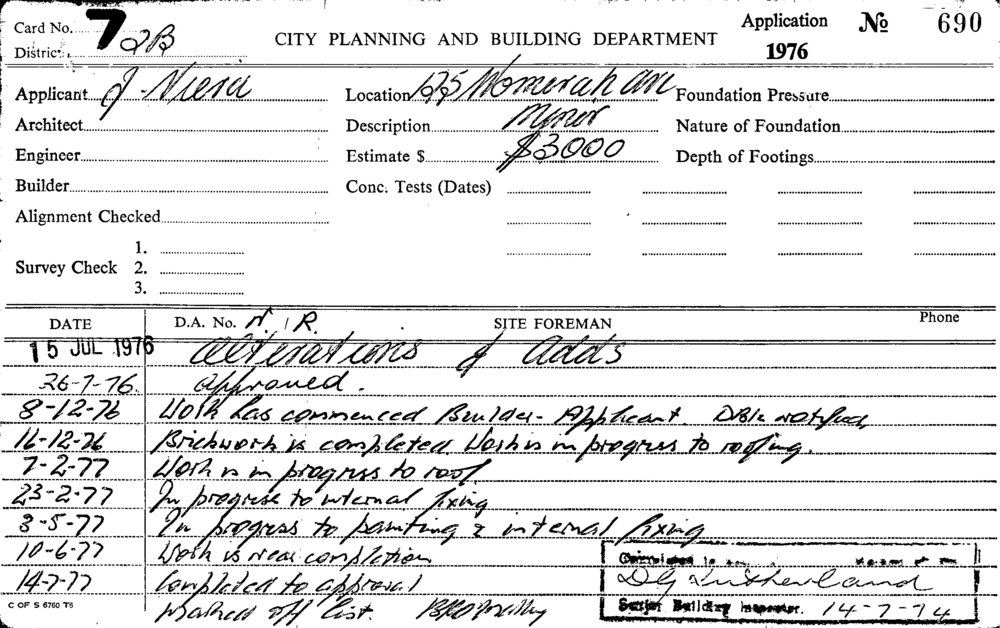 Card No. 7 2B
District
CITY PLANNING AND BUILDING DEPARTMENT
Application № 690
1976
Applicant J. Location 125 Womerah Ave Foundation Pressure
Architect Description Minor Nature of Foundation
Engineer Estimate $ $3000 Depth of Footings
Builder Conc. Tests (Dates)
Alignment Checked
1.
Survey Check 2.
3.
DATE D.A. No. N/R. SITE FOREMAN Phone
15 JUL 1976 Alterations & Adds
26-7-76. approved.
8-12-76 Work has commenced Builder - Applicant. notified
16-12-76 Brickwork is completed. Work is in progress to roofing.
7-2-77 Work is in progress to roof.
23-2-77 In progress to internal fixing
3-5-77 In progress to painting & internal fixing
10-6-77 Work is near completion
14-7-77 Completed to approval
Marked off list.
Completed
D G Sutherland
Senior Building Inspector. 14-7-74
C OF S 6760 T6